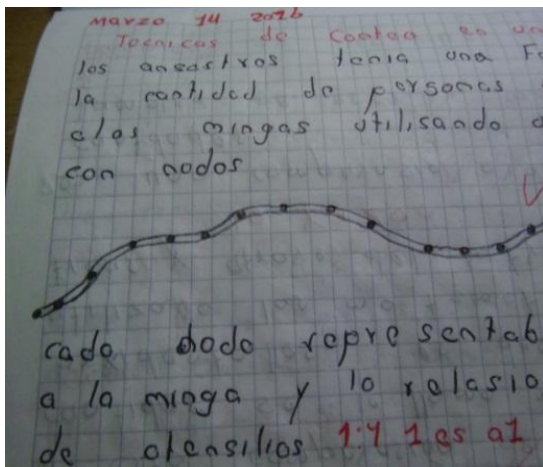 Marzo 14 2016
Tecnicas de conteo en un
los ancestros tenia una Fo
la cantidad de personas
a las mingas utilisando
con nodos
cado nodo representab
a la minga y lo relasio
de otensilios 1:4 1 es a1